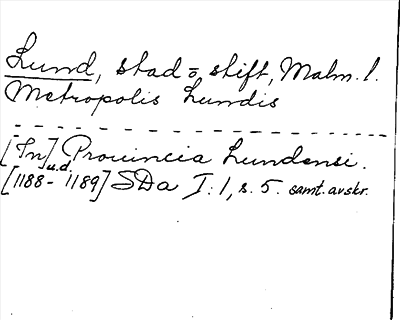 Lund, stad o. stift, Malm. l.
Metropolis Lundis
[In] Prouincia Lundensi.
u.d.
[1188-1189] SDa I:1, s. 5. samt. avskr.